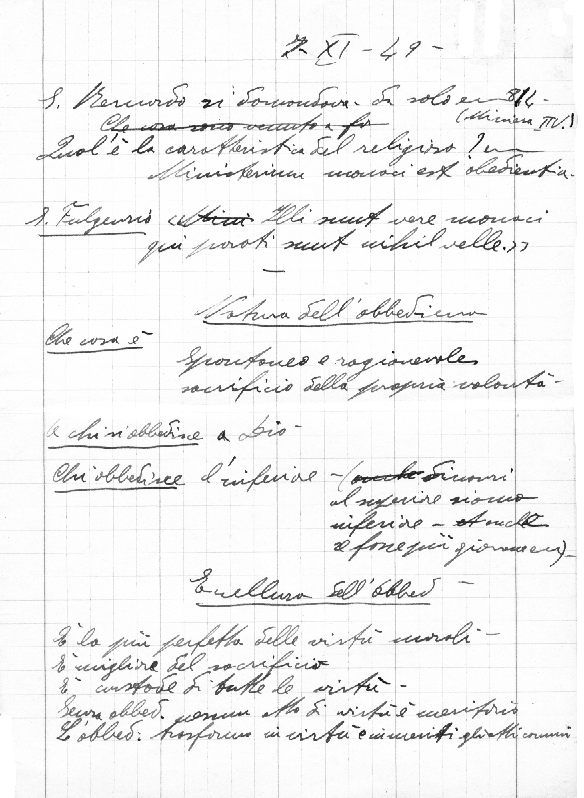 7 XI - 49 -
S. Bernardo si domandava da solo
(Miniera IV)
Che cosa sono venuto a far
Qual'è la caratteristica del religioso?
Ministerium monaci est obedientia.
S. Fulgenzio « Illi sunt vere monaci
qui parati sunt nihil velle.»
Natura dell'obbedienza
Che cosa è
Spontaneo e ragionevole
sacrificio della propria volontà -
A chi si obbedisce a Dio -
Chi obbedisce l'inferiore - (anche dinanzi
al superiore siamo
inferiore - anche
se fosse più giovane
Excellenza dell'obbed -
È la più perfetta delle virtù morali -
È migliore del sacrificio
È custode di tutte le virtù -
Senza obbed. nessun atto di virtù è meritorio
L'obbed. trasforma in virtù e in meriti gli atti comuni